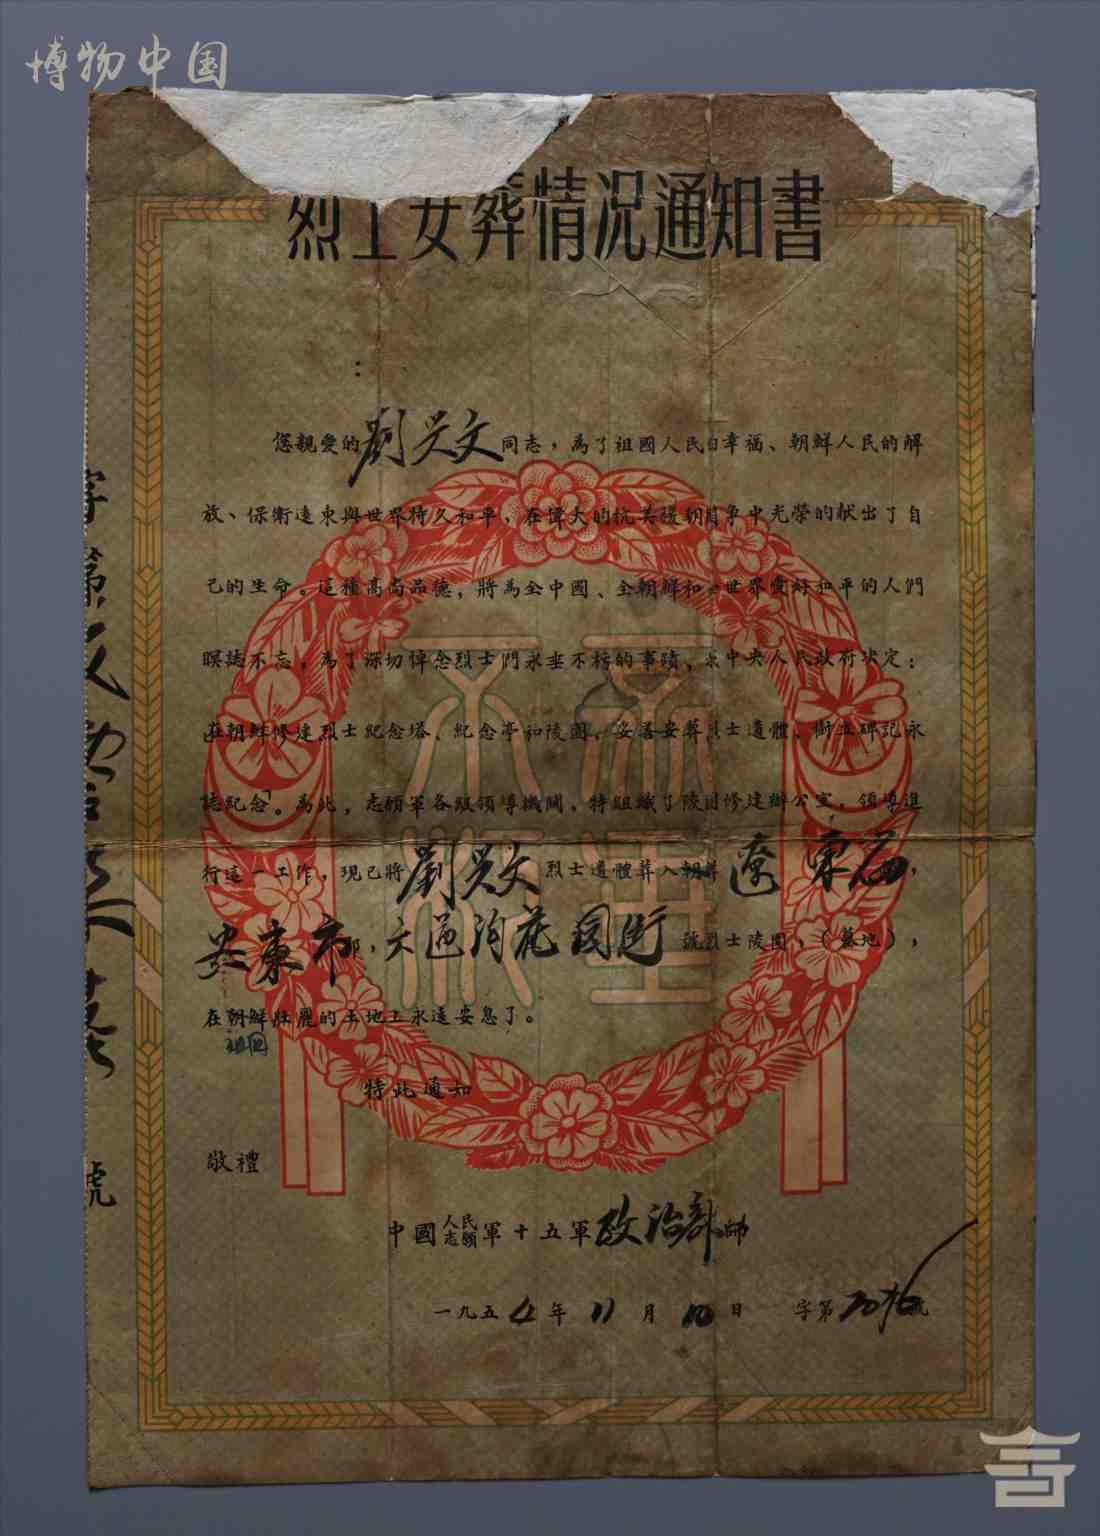 博物中国
烈士安葬情况通知書
：
您親愛的劉兴文同志，為了祖國人民的幸福、朝鮮人民的解
放、保衛遠東與世界持久和平，在偉大的抗美援朝爭中光榮的献出了自
己的生命。這種高尚品德，將為全中國、全朝鮮和全世界愛好和平的人們
瞑誌不忘，為了深切悼念烈士們永垂不朽的事蹟，中央人民政府决定：
在朝鮮修建烈士紀念塔、紀念亭和陵園，妥善安葬烈士遺體、樹立碑記永
誌紀念。為此，志願軍各級領導機関，特組織了陵園修建辦公室，領導進
行這一工作，現已將劉兴文烈士遺體葬入朝鮮遼東省，
安東市郡，六道沟花園街號烈士陵園，（墓地），
在朝鮮壯麗的土地上永遠安息了。
祖国
特此通知
敬禮
中國人民志願軍十五軍政治部師
一九五4年11月10日 字第號
字第
號
不朽
永垂